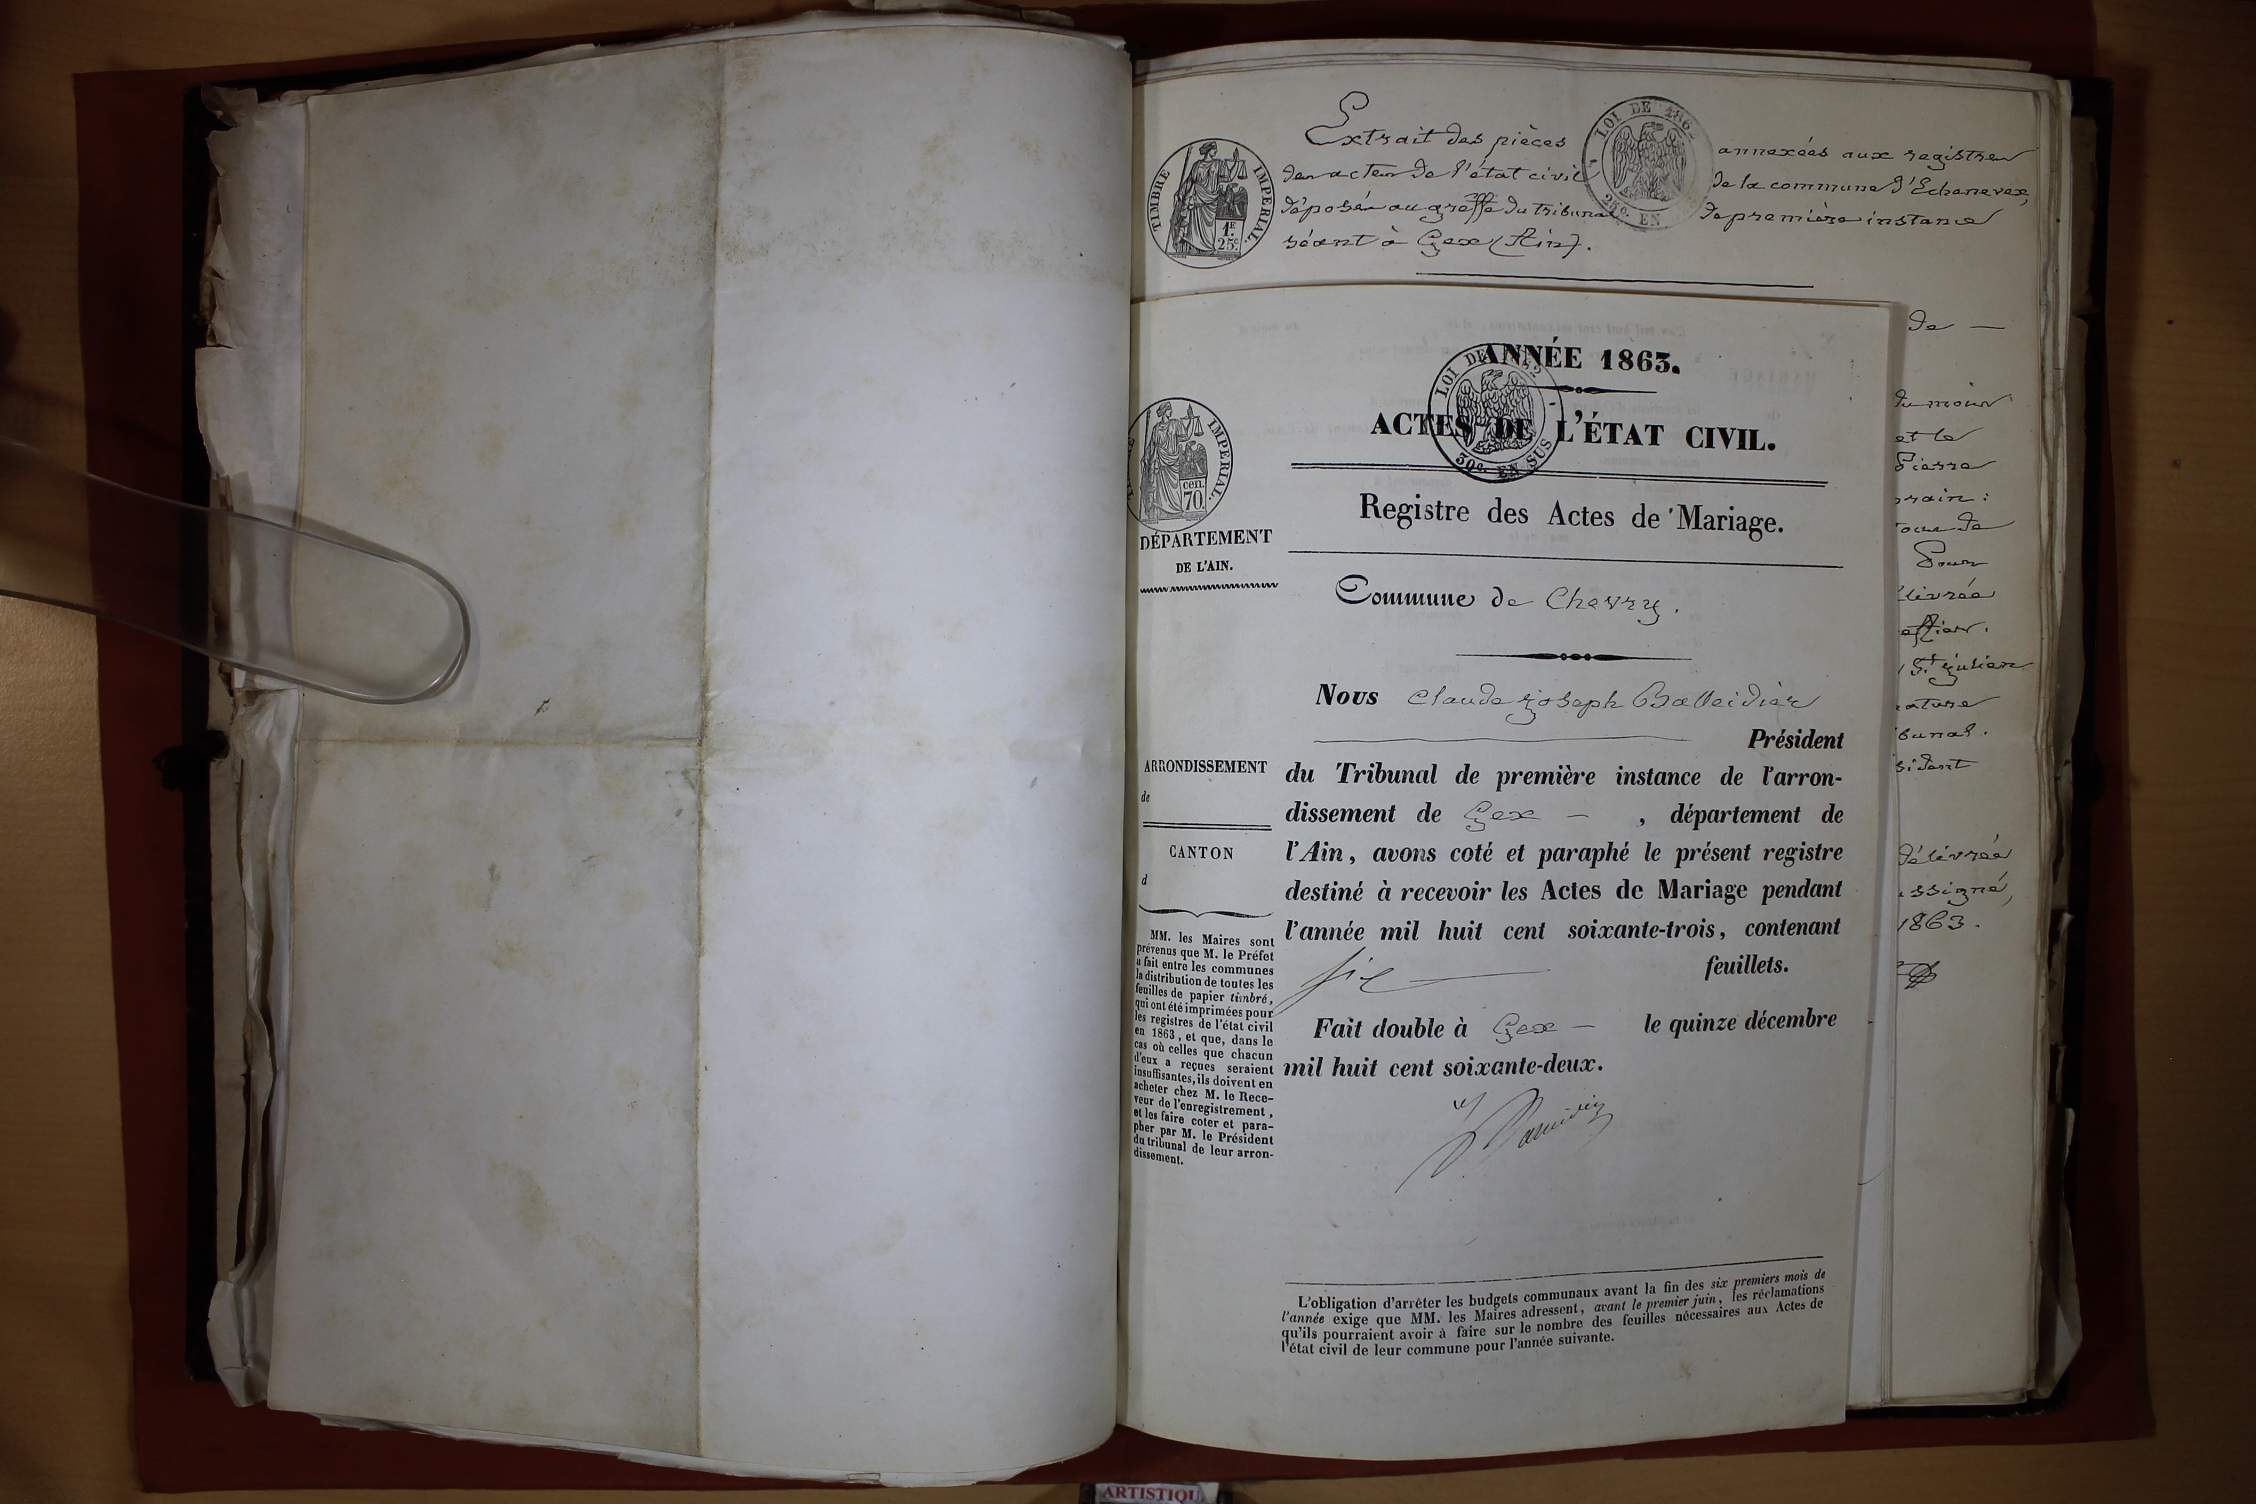 Extrait des pièces annexées aux registres
des actes de l'état civil de la commune d'Echenevex,
déposés au greffe du tribunal de première instance
séant à Gex (Ain).
TIMBRE IMPERIAL.
1F.
25c.
LOI DE 1862
25c. EN
de —
et le
Pierre
Pour
St Julien
délivrée
1863.
ANNÉE 1863.
LOI DE
30c. EN SUS
ACTES DE L'ÉTAT CIVIL.
IMPERIAL.
cen.
70.
Registre des Actes de Mariage.
DÉPARTEMENT
DE L'AIN.
Commune de Chevry.
Nous Claude Joseph Balleidier
Président
du Tribunal de première instance de l'arron-
dissement de Gex — , département de
l'Ain, avons coté et paraphé le présent registre
destiné à recevoir les Actes de Mariage pendant
l'année mil huit cent soixante-trois, contenant
six feuillets.
Fait double à Gex — le quinze décembre
mil huit cent soixante-deux.
ARRONDISSEMENT
de
CANTON
d
MM. les Maires sont
prévenus que M. le Préfet
a fait entre les communes
la distribution de toutes les
feuilles de papier timbré,
qui ont été imprimées pour
les registres de l'état civil
en 1863, et que, dans le
cas où celles que chacun
d'eux a reçues seraient
insuffisantes, ils doivent en
acheter chez M. le Rece-
veur de l'enregistrement,
et les faire coter et para-
pher par M. le Président
du tribunal de leur arron-
dissement.
L'obligation d'arrêter les budgets communaux avant la fin des six premiers mois de
l'année exige que MM. les Maires adressent, avant le premier juin, les réclamations
qu'ils pourraient avoir à faire sur le nombre des feuilles nécessaires aux Actes de
l'état civil de leur commune pour l'année suivante.
ARTISTIQU